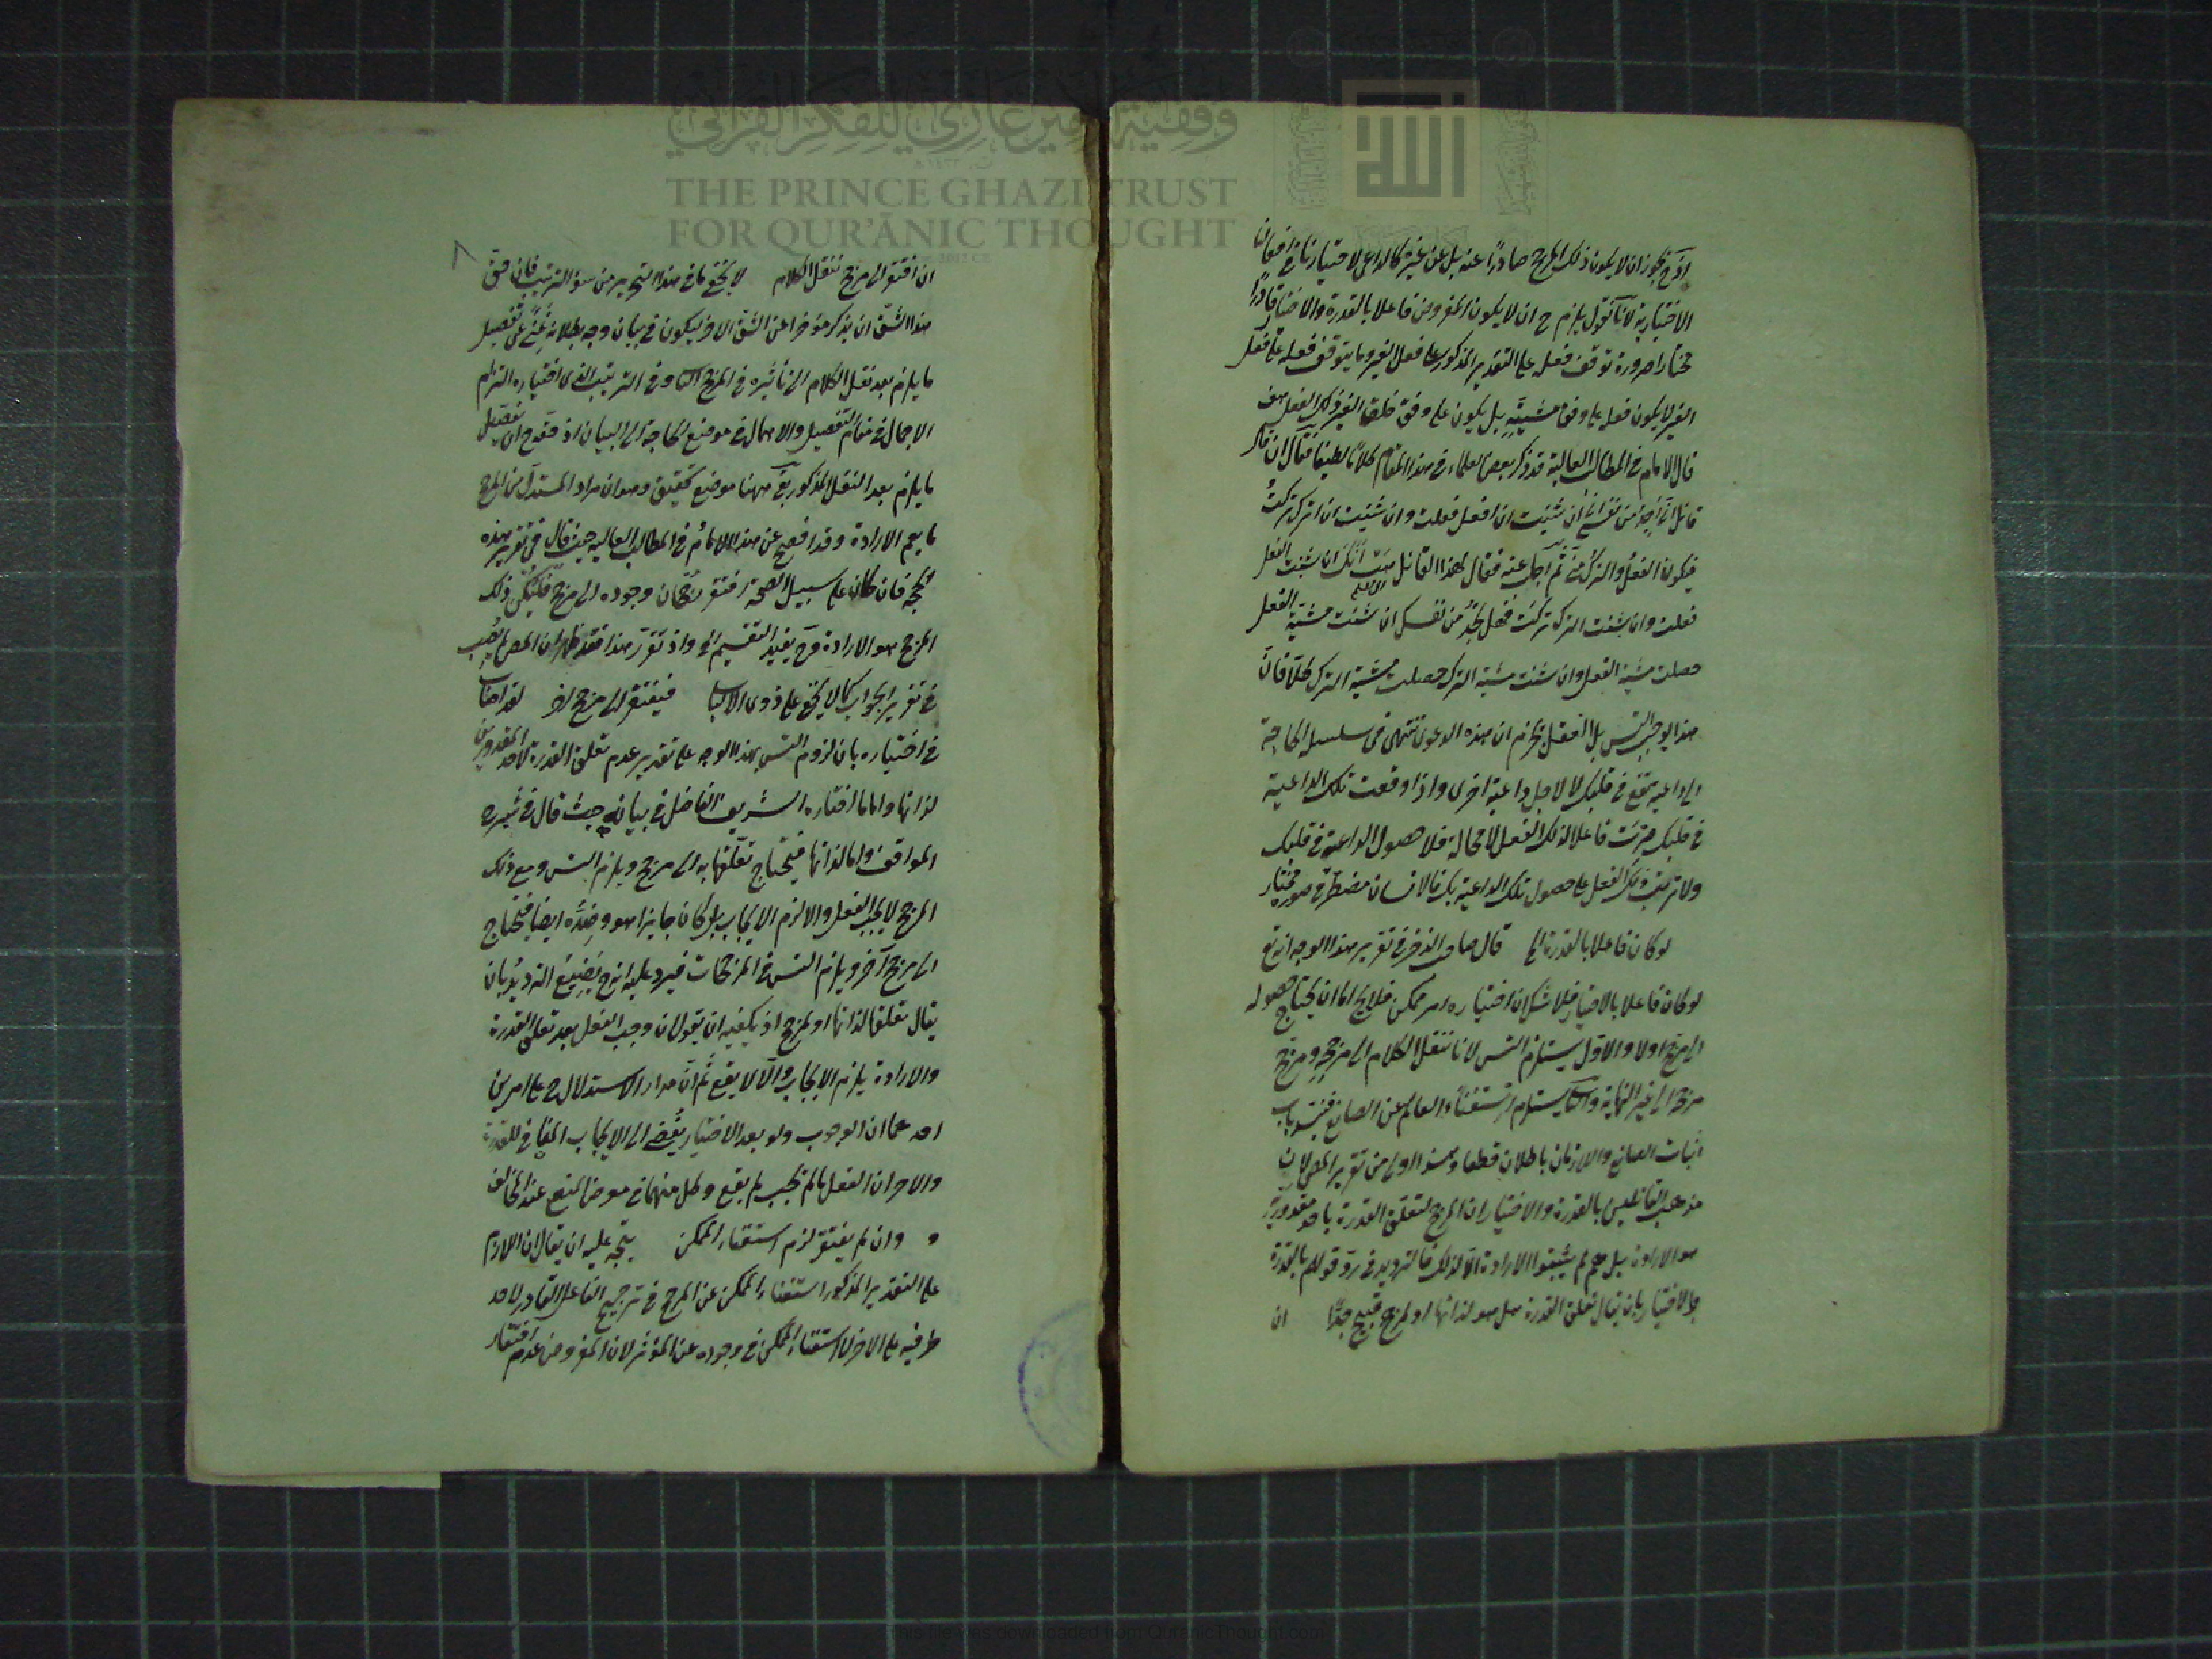 اذ ح يجوز ان لا يكون ذلك المرجح صادرًا عنه بل عن غيره كالداعى لاختيارنا فى افعالنا
الاختيارية لانا نقول يلزم ح ان لا يكون المفروض فاعلا بالقدرة والاختيار قادرًا
مختارا ضرورة توقف فعله على التقدير المذكور على فعل الغير وما يتوقف فعله على فعل
الغير لا يكون فعله على وفق مشيته بل يكون على وفق خلق الغير ذلك الفعل هف
قال الامام فى المطالب العالية قد ذكر بعض العلماء فى هذا المقام كلامًا لطيفا فقال ان قال
قائل انى اجد من نفسى انى ان شئت ان افعل فعلت وان شئت ان اترك تركتُ
فيكون الفعلُ والتركُ منى ثم اجاب عنه فقال لهذا القائل هب انك ان شئت الفعل
فعلت وان شئت الترك تركت فهل تجد من نفسك ان شئت مشية الفعل
حصلت مشية الفعل وان شئت مشية الترك حصلت مشية الترك كلا فان
هذا يوجب التس بل العقل يجزم ان هذه الدعوى تنتهى فى سلسلة الحاجة
الى داعية تقع فى قلبك لا لاجل داعية اخرى واذا وقعت تلك الداعية
فى قلبك صرت فاعلا لذلك الفعل لا محالة فلا حصول الداعية فى قلبك
ولا ترتب ذلك الفعل على حصول تلك الداعية بك فالانسان مضطر فى صورة مختار
لو كان فاعلا بالقدرة الخ قال صاحب الذخر فى تقرير هذا الوجه انه تع
لو كان فاعلا بالاختيار فلا شك ان اختياره امر ممكن فلا يخ اما ان يحتاج حصوله
الى مرجح اولا والاول يستلزم التس لانا ننقل الكلام الى مرجحه ومرجح
مرجحه الى غير النهاية والثانى يستلزم استغناء العالم عن الصانع فينسد باب
اثبات الصانع واللازمان باطلان قطعا وهذا اولى من تقرير المص لان
مذهب القائلين بالقدرة والاختيار ان المرجح لتعلق القدرة باحد مقدوريه
هو الارادة بل هم لم يثبتوا الارادة الا لذلك فالترديد فى رد قولهم بالقدرة
والاختيار بان يقال تعلق القدرة هل هو لذاتها او لمرجح قبيح جدًّا ان
٨
ان افتقر الى مرجح ننقل الكلام لا يخفى ما فى هذا التحرير من سوء الترتيب فان حق
هذا الشق ان يذكر مؤخرا عن الشق الاخر ليكون فى بيان وجه بطلانه غنىً عن تفصيل
ما يلزم بعد نقل الكلام الى تأثيره فى المرجح الثانى وفى الترتيب الذى اختياره التزام
الاجمال فى مقام التفصيل والاهمال فى موضع الحاجة الى البيان اذ حقه ح ان تفصيل
ما يلزم بعد النقل المذكور بقى ههنا موضع تحقيق وهو ان مراد المستدل من المرجح
ما يعم الارادة وقد افصح عن هذا الامامُ فى المطالب العالية حيث قال فى تقرير هذه
الحجة فان كان على سبيل الصحة افتقر رجحان وجوده الى مرجح فليكن ذلك
المرجح هو الارادة وح يفيد التقسيم الخ واذ تقرر هذا فقد ظهر ان المص لم يُصِب
فى تقرير الجواب كما لا يخفى على ذوى الالباب فيفتقر الى مرجح اخر لقد اصاب
فى اختياره بان لزوم التس بهذا الوجه على تقدير عدم تعلق القدرة لاحد المقدورين
لذاتها واما ما اختاره الشريف الفاضل فى بيانه حيث قال فى شرح
المواقف واما لذاتها فيحتاج تعلقها به الى مرجح ويلزم التس ومع ذلك
المرجح لا يجب الفعل والا لزم الايجاب بل كان جايزا هو وضدّه ايضا فيحتاج
الى مرجح آخر ويلزم التس فى المرجحات فيرد عليه انه ح يَضِيع الترديدُ بان
يقال تعلقها لذاتها او لمرجح اذ يكفيه ان يقول ان وجب الفعل بعد تعلق القدرة
والارادة يلزم الايجاب والا لا يقع ثم ان مدار الاستدلال ح على امرين
احدهما ان الوجوب ولو بعد الاختيار يُفضى الى الايجاب المنافى للقدرة
والاخر ان الفعل ما لم يجب لم يقع وكل منهما فى معرض المنع عند المخالف
و وان لم يفتقر لزم استغناء الممكن يتجه عليه ان يقال ان اللازم
على التقدير المذكور استغناء الممكن عن المرجح فى ترجيح الفاعل القادر لاحد
طرفيه على الاخر لا استغناء الممكن فى وجوده عن المؤثر لان المفروض عدم افتقار
وقفية الأمير غازي للفكر القرآني
THE PRINCE GHAZI TRUST
FOR QUR'ĀNIC THOUGHT
This file was downloaded from QuranicThought.com